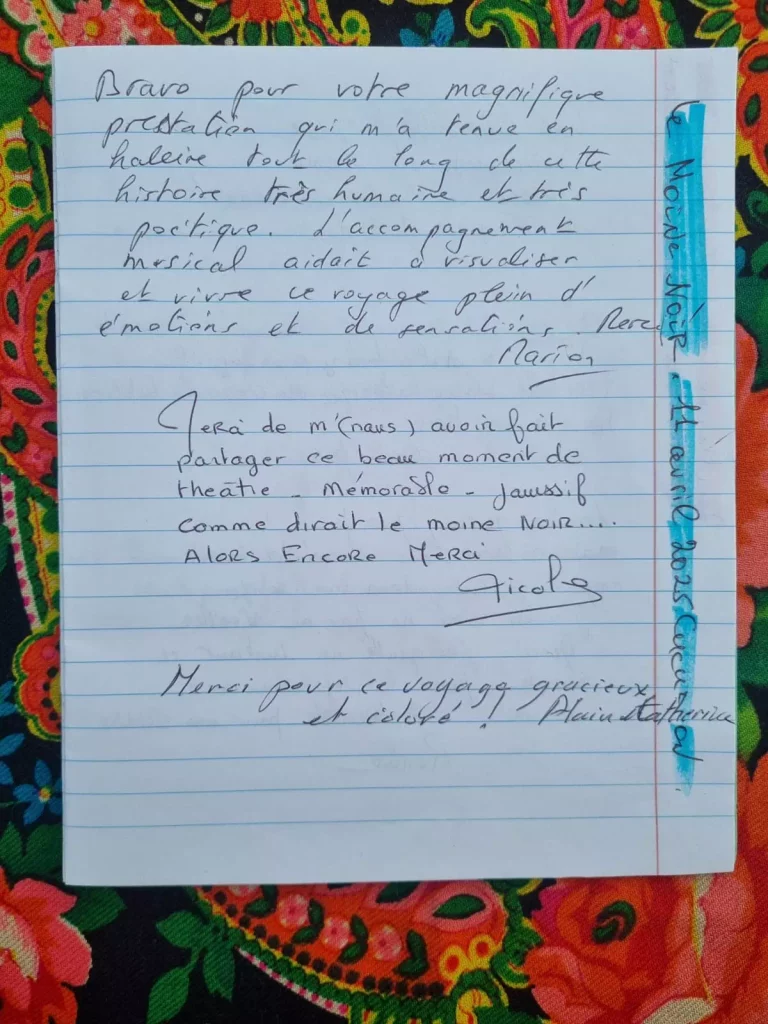 Bravo pour votre magnifique
prestation qui m'a tenue en
haleine tout le long de cette
histoire très humaine et très
poétique. L'accompagnement
musical aidait à visualiser
et vivre ce voyage plein d'
émotions et de sensations. Merci
Marion
Merci de m'(nous) avoir fait
partager ce beau moment de
theâtre - Mémorable - Jouissif
comme dirait le moine NOIR....
ALORS ENCORE MERCI
Nicole
Merci pour ce voyage gracieux
et coloré ! Alain Katherine
Le MOINE NOIR. 11 avril 2025 CUCURON.